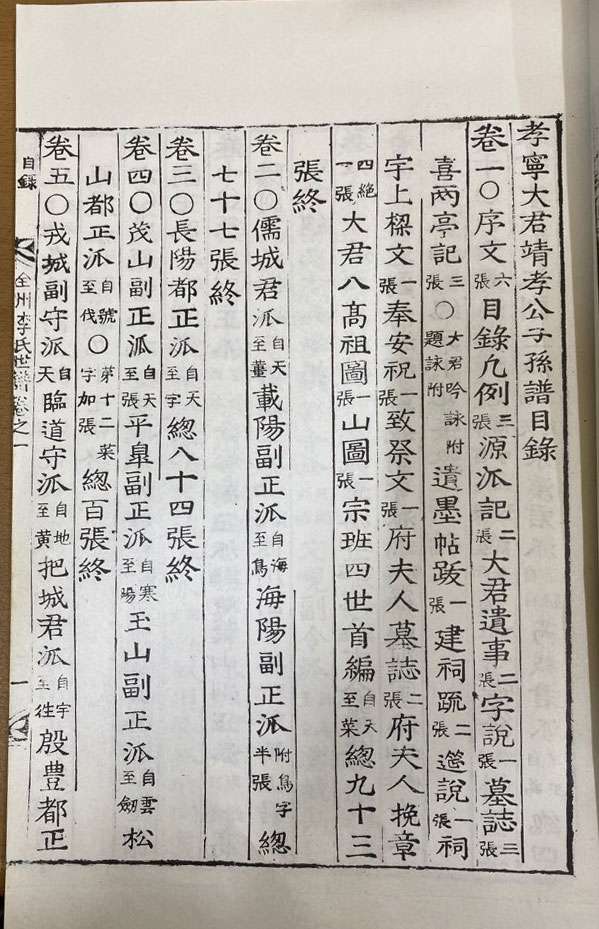 孝寧大君靖孝公子孫譜目錄
卷一〇序文六張目錄凡例三張源派記二張大君遺事二張字說一張墓誌三張
喜兩亭記三張〇大君吟詠附題詠附遺墨帖跋一張建祠䟽二張邀說一張祠
宇上樑文一張奉安祝一張致祭文一張府夫人墓誌二張府夫人挽章
四絶一張大君八高祖圖一張山圖一張宗班四世首編自天至菜總九十三
張終
卷二〇儒城君派自天至薑載陽副正派自海至鳥海陽副正派附鳥字半張總
七十七張終
卷三〇長陽都正派自天至字總八十四張終
卷四〇茂山副正派自天至張平皐副正派自寒至陽玉山副正派自雲至劒松
山都正派自號至伐〇第十二菜字加張總百張終
卷五〇戎城副守派自天臨道守派自地至黃把城君派自宇至往殷豊都正
目錄
全州李氏世譜卷之一
一